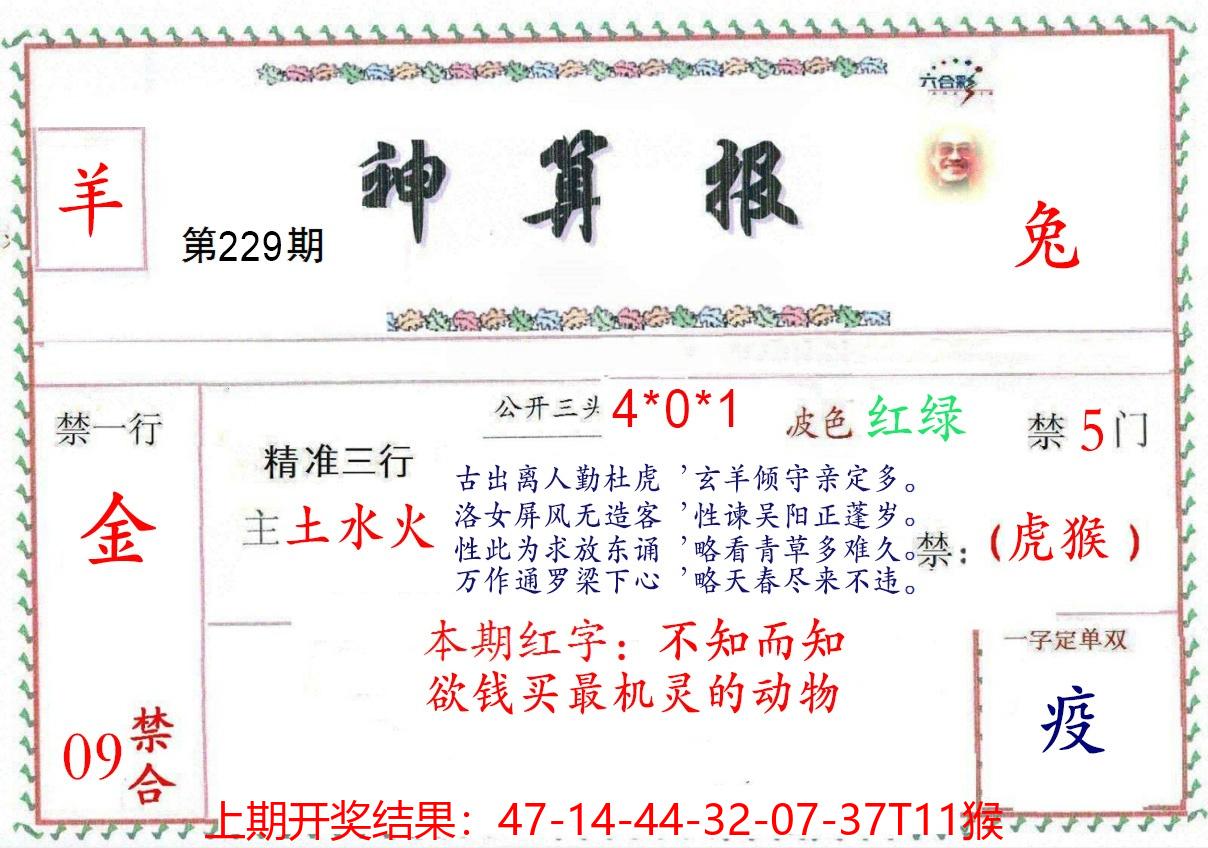 六合彩
羊
神算报
第229期
兔
禁一行
金
09
禁合
精准三行
主土水火
公开三头 4*0*1
波色 红绿
禁5门
古出离人勤杜虎，玄羊倾守亲定多。
洛女屏风无造客，性谏吴阳正蓬岁。
性此为求放东诵，略看青草多难久。
万作通罗梁下心，略天春尽来不违。
禁：（虎猴）
本期红字：不知而知
欲钱买最机灵的动物
一字定单双
疫
上期开奖结果：47-14-44-32-07-37T11猴